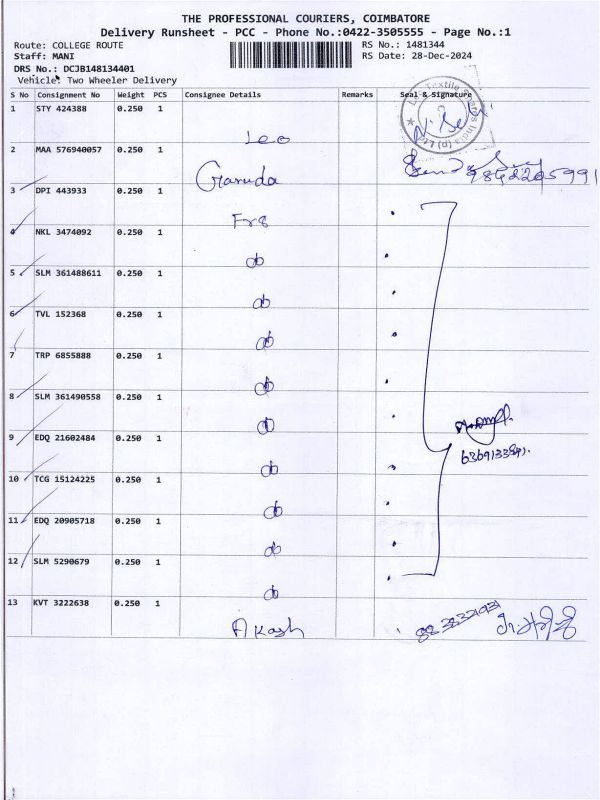 THE PROFESSIONAL COURIERS, COIMBATORE
Delivery Runsheet - PCC - Phone No.:0422-3505555 - Page No.:1
Route: COLLEGE ROUTE RS No.: 1481344
Staff: MANI RS Date: 28-Dec-2024
DRS No.: DCJB148134401
Vehicle: Two Wheeler Delivery
S No Consignment No Weight PCS Consignee Details Remarks Seal & Signature
1 STY 424388 0.250 1 Leo
2 MAA 576940057 0.250 1 Garuda 9842205991
3 DPI 443933 0.250 1 Frs
4 NKL 3474092 0.250 1 do
5 SLM 361488611 0.250 1 do
6 TVL 152368 0.250 1 do
7 TRP 6855888 0.250 1 do
8 SLM 361490558 0.250 1 do
9 EDQ 21602484 0.250 1 do
10 TCG 15124225 0.250 1 do
11 EDQ 20905718 0.250 1 do
12 SLM 5290679 0.250 1 do
13 KVT 3222638 0.250 1 Akash